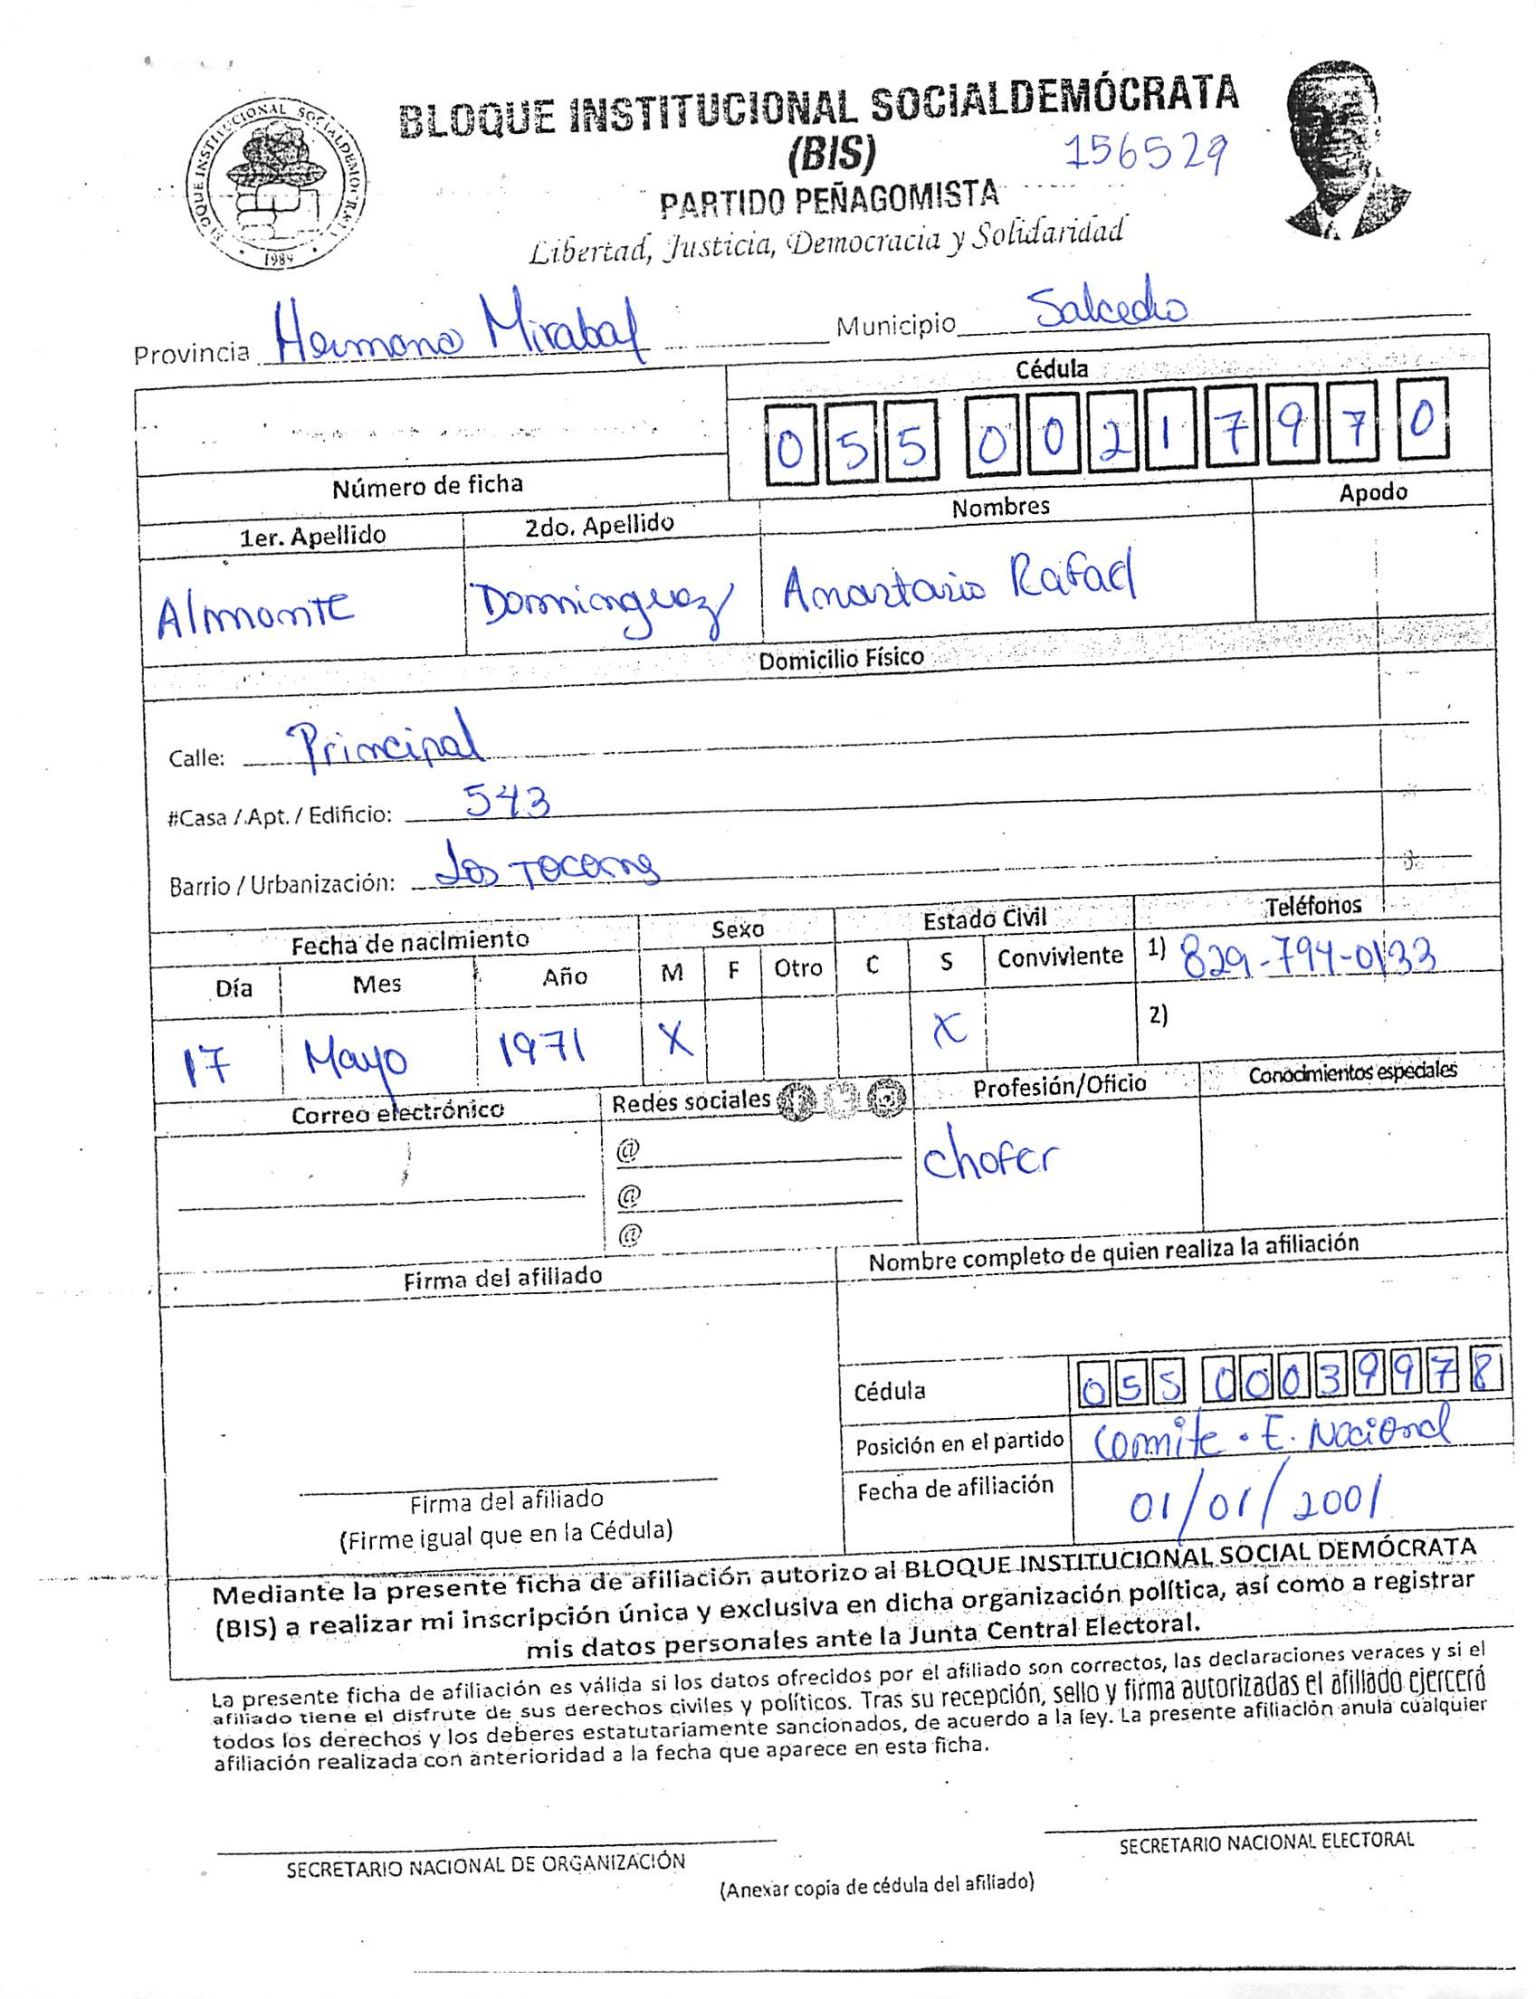 BLOQUE INSTITUCIONAL SOCIALDEMÓCRATA
(BIS)
156529
PARTIDO PEÑAGOMISTA
Libertad, Justicia, Democracia y Solidaridad
BLOQUE INSTITUCIONAL SOCIALDEMOCRATA
1989
Provincia Hermana Mirabal Municipio Salcedo
Cédula
055 0021797 0
Número de ficha
1er. Apellido 2do. Apellido Nombres Apodo
Almonte Dominguez Anastasio Rafael
Domicilio Físico
Calle: Principal
#Casa / Apt. / Edificio: 543
Barrio / Urbanización: Los
Fecha de nacimiento Sexo Estado Civil Teléfonos
Día Mes Año M F Otro C S Conviviente 1) 829-794-0133
17 Mayo 1971 X X 2)
Correo electrónico Redes sociales Profesión/Oficio Conocimientos especiales
@ chofer
@
@
Firma del afiliado Nombre completo de quien realiza la afiliación
Cédula 055 0003997 8
Posición en el partido Comite. E. Nacional
Fecha de afiliación 01/01/2001
Firma del afiliado
(Firme igual que en la Cédula)
Mediante la presente ficha de afiliación autorizo al BLOQUE INSTITUCIONAL SOCIAL DEMÓCRATA
(BIS) a realizar mi inscripción única y exclusiva en dicha organización política, así como a registrar
mis datos personales ante la Junta Central Electoral.
La presente ficha de afiliación es válida si los datos ofrecidos por el afiliado son correctos, las declaraciones veraces y si el
afiliado tiene el disfrute de sus derechos civiles y políticos. Tras su recepción, sello y firma autorizadas el afiliado ejercerá
todos los derechos y los deberes estatutariamente sancionados, de acuerdo a la ley. La presente afiliación anula cualquier
afiliación realizada con anterioridad a la fecha que aparece en esta ficha.
SECRETARIO NACIONAL DE ORGANIZACIÓN SECRETARIO NACIONAL ELECTORAL
(Anexar copia de cédula del afiliado)